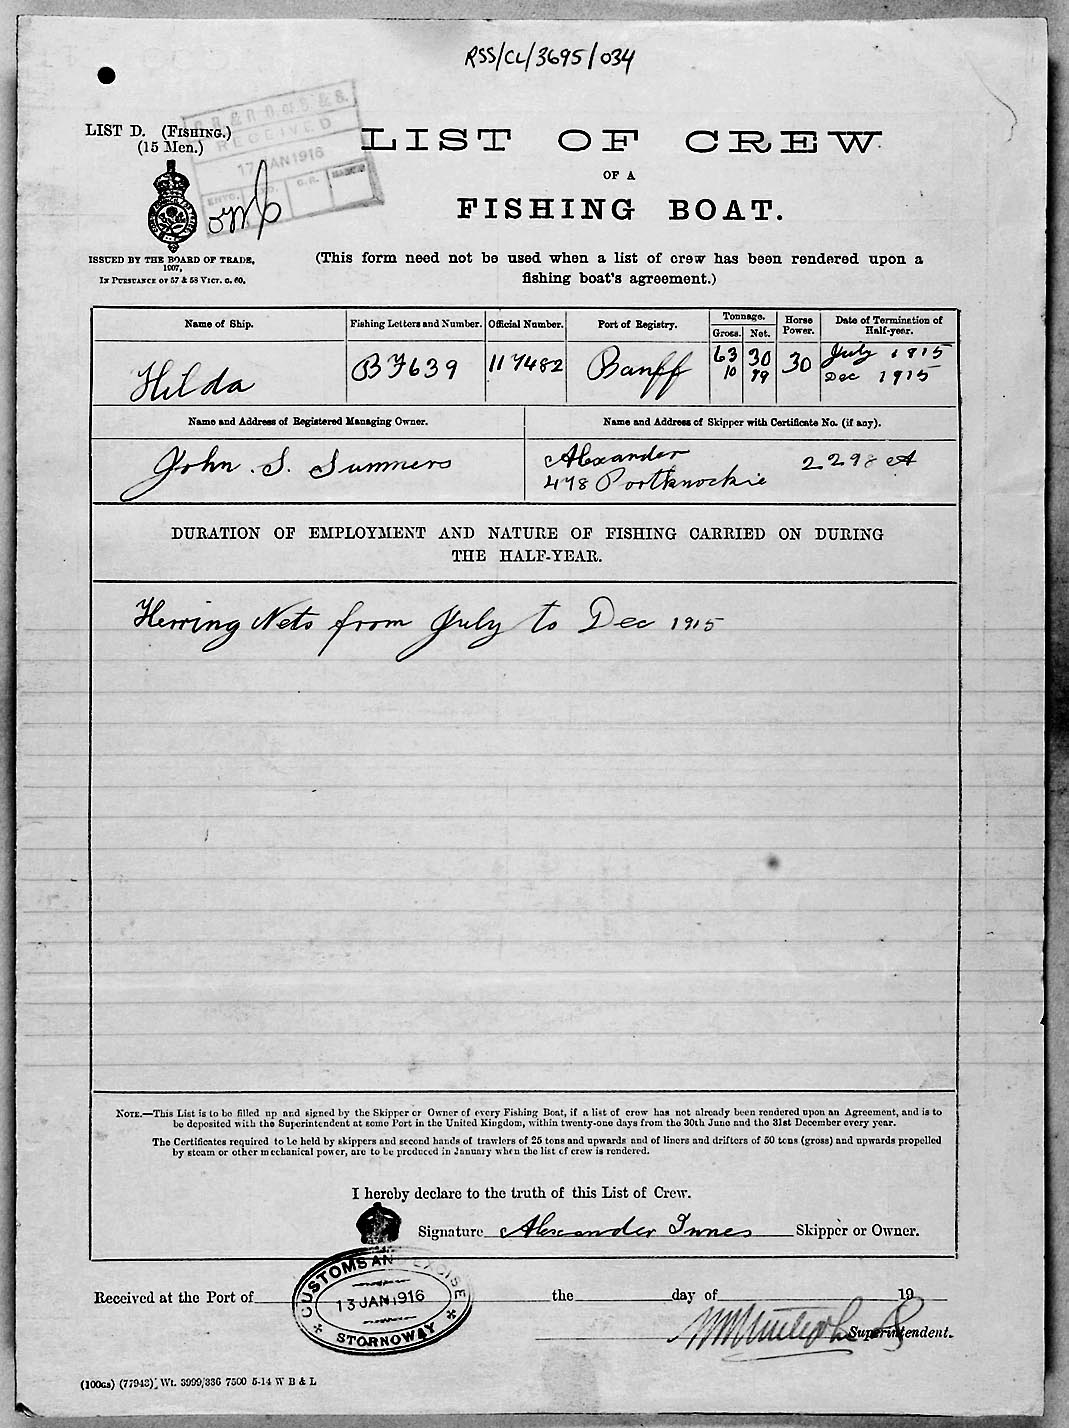 RSS/CL/3695/034
LIST D. (FISHING.)
(15 Men.)
RECEIVED
17 JAN 1916
LIST OF CREW
OF A
FISHING BOAT.
ISSUED BY THE BOARD OF TRADE,
1907,
IN PURSUANCE OF 57 & 58 VICT. C. 60.
(This form need not be used when a list of crew has been rendered upon a
fishing boat's agreement.)
Name of Ship. Fishing Letters and Number. Official Number. Port of Registry. Tonnage. Gross. Net. Horse Power. Date of Termination of Half-year.
Hilda BF639 117482 Banff 63 30 30 July 1915
10 99 Dec 1915
Name and Address of Registered Managing Owner. Name and Address of Skipper with Certificate No. (if any).
John. S. Summers Alexander 2298 A
478 Portknockie
DURATION OF EMPLOYMENT AND NATURE OF FISHING CARRIED ON DURING
THE HALF-YEAR.
Herring Nets from July to Dec 1915
NOTE.—This List is to be filled up and signed by the Skipper or Owner of every Fishing Boat, if a list of crew has not already been rendered upon an Agreement, and is to
be deposited with the Superintendent at some Port in the United Kingdom, within twenty-one days from the 30th June and the 31st December every year.
The Certificates required to be held by skippers and second hands of trawlers of 25 tons and upwards and of liners and drifters of 50 tons (gross) and upwards propelled
by steam or other mechanical power, are to be produced in January when the list of crew is rendered.
I hereby declare to the truth of this List of Crew.
Signature Alexander Innes Skipper or Owner.
CUSTOMS AND EXCISE
Received at the Port of 13 JAN 1916 the day of 19
STORNOWAY
Superintendent.
(100GS) (77943) Wt. 3999/336 7500 5-14 W B & L